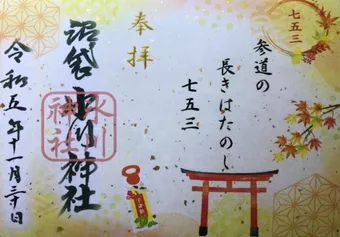 七五三
参道の
長きはたのし
七五三
奉拝
沼袋 氷川神社
氷川神社
令和五年十一月三十日